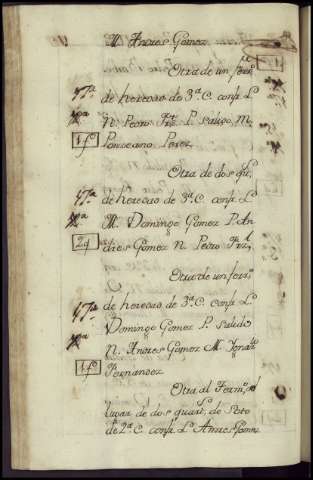 M. Andres Gomez
Otra de un ferr.
de heredad de 3ª C. conf. L.
N. Pedro Frz. P. salido, M.
1 f.º Ponceano Perez
Otra de dos qu.
de heredad de 3ª C. conf. L.
M. Domingo Gomez P. An
2 q dres Gomez N. Pedro Frz.
Otra de un ferr.
de heredad de 3ª C. conf. L.
Domingo Gomez P. salido
N. Andres Gomez M. Ignaº
1 f.º Fernandez
Otra, al Ferm.
lugar de dos quart. de Soto
de 2ª C. conf. L. Andres Gomez